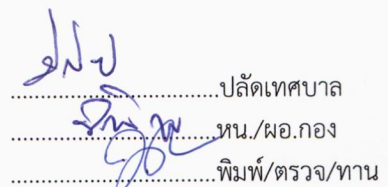 ....................................ปลัดเทศบาล
....................................หน./ผอ.กอง
....................................พิมพ์/ตรวจ/ทาน